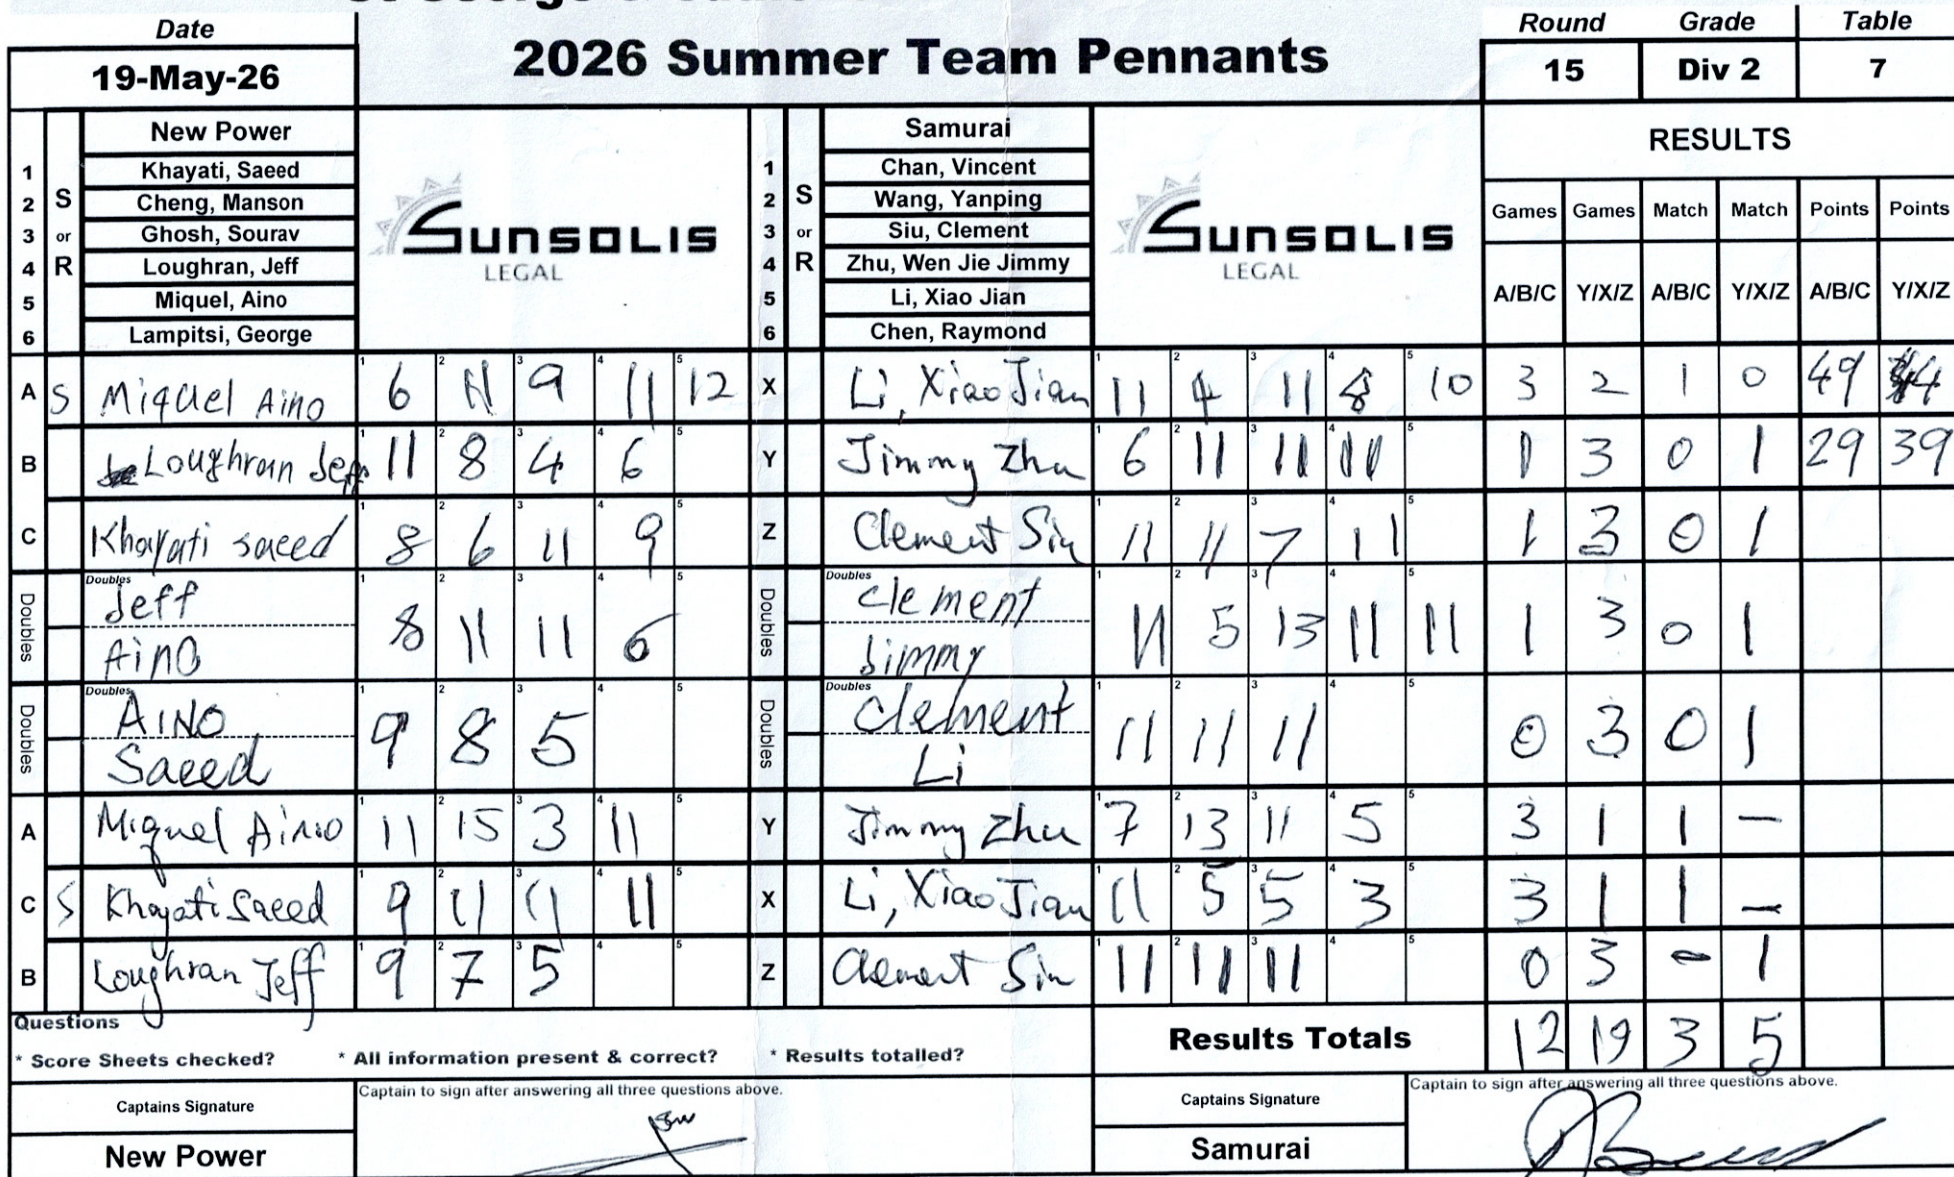 Date
19-May-26
2026 Summer Team Pennants
Round Grade Table
15 Div 2 7
New Power
1 Khayati, Saeed
2 Cheng, Manson
3 Ghosh, Sourav
4 Loughran, Jeff
5 Miquel, Aino
6 Lampitsi, George
S or R
SUNSOLIS
LEGAL
Samurai
1 Chan, Vincent
2 Wang, Yanping
3 Siu, Clement
4 Zhu, Wen Jie Jimmy
5 Li, Xiao Jian
6 Chen, Raymond
S or R
SUNSOLIS
LEGAL
RESULTS
Games Games Match Match Points Points
A/B/C Y/X/Z A/B/C Y/X/Z A/B/C Y/X/Z
A S Miquel Aino 6 11 9 11 12 X Li, Xiao Jian 11 4 11 8 10 3 2 1 0 49 44
B Loughran Jeff 11 8 4 6 Y Jimmy Zhu 6 11 11 11 1 3 0 1 29 39
C Khayati saeed 8 6 11 9 Z Clement Siu 11 11 7 11 1 3 0 1
Doubles Jeff Aino 8 11 11 6 Doubles Clement Jimmy 11 5 13 11 11 1 3 0 1
Doubles AINO Saeed 9 8 5 Doubles Clement Li 11 11 11 0 3 0 1
A Miquel Aino 11 15 3 11 Y Jimmy Zhu 7 13 11 5 3 1 1 –
C S Khayati Saeed 9 11 11 11 X Li, Xiao Jian 11 5 5 3 3 1 1 –
B Loughran Jeff 9 7 5 Z Clement Siu 11 11 11 0 3 – 1
Questions
* Score Sheets checked? * All information present & correct? * Results totalled?
Results Totals 12 19 3 5
Captains Signature
Captain to sign after answering all three questions above.
New Power
Captains Signature
Captain to sign after answering all three questions above.
Samurai